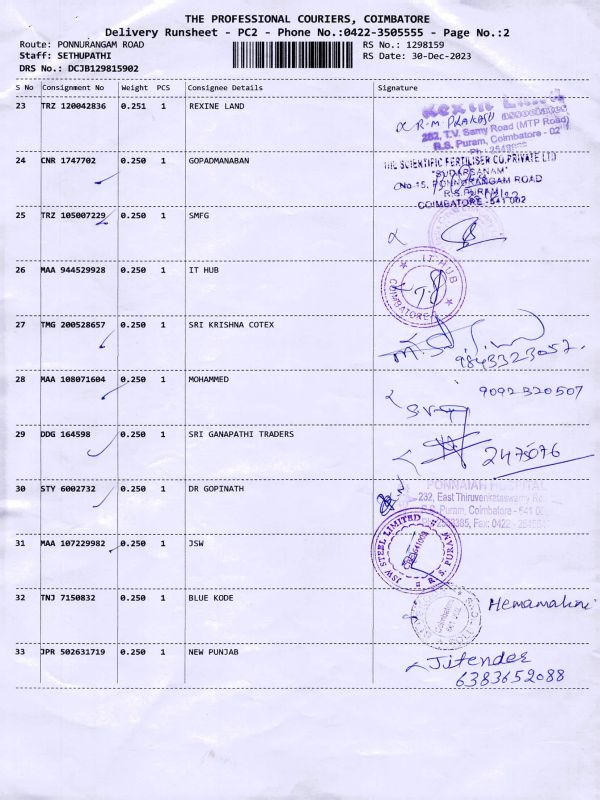 THE PROFESSIONAL COURIERS, COIMBATORE
Delivery Runsheet - PC2 - Phone No.:0422-3505555 - Page No.:2
Route: PONNURANGAM ROAD
RS No.: 1298159
Staff: SETHUPATHI
RS Date: 30-Dec-2023
DRS No.: DCJB129815902
S No Consignment No Weight PCS Consignee Details Signature
23 TRZ 120042836 0.251 1 REXINE LAND
R-M PRAKASH
associates
282, T.V. Samy Road (MTP Road)
R.S. Puram, Coimbatore - 02
24 CNR 1747702 0.250 1 GOPADMANABAN
THE SCIENTIFIC FERTILISER CO. PRIVATE LTD
"SUDARSANAM"
No-15, PONNURANGAM ROAD
R.S. PURAM
COIMBATORE - 641 002
25 TRZ 105007229 0.250 1 SMFG
26 MAA 944529928 0.250 1 IT HUB
IT HUB
COIMBATORE
27 TMG 200528657 0.250 1 SRI KRISHNA COTEX
9843323057.
28 MAA 108071604 0.250 1 MOHAMMED
9092320507
29 DDG 164598 0.250 1 SRI GANAPATHI TRADERS
2475076
30 STY 6002732 0.250 1 DR GOPINATH
PONNAIAH HOSPITAL
232, East Thiruvenkataswamy Ro
R.S. Puram, Coimbatore - 641 00
Fax: 0422 -
31 MAA 107229982 0.250 1 JSW
JSW STEEL LIMITED
R.S. PURAM
32 TNJ 7150832 0.250 1 BLUE KODE
Hemamalini
33 JPR 502631719 0.250 1 NEW PUNJAB
Jitender
6383652088